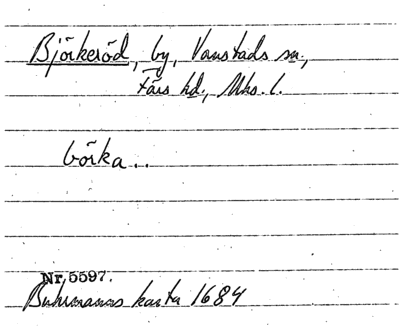 Björkeröd, by, Vanstads sn.,
Färs hd., Mhs. l.
börka..
Nr. 5597.
Buhrmanns karta 1684